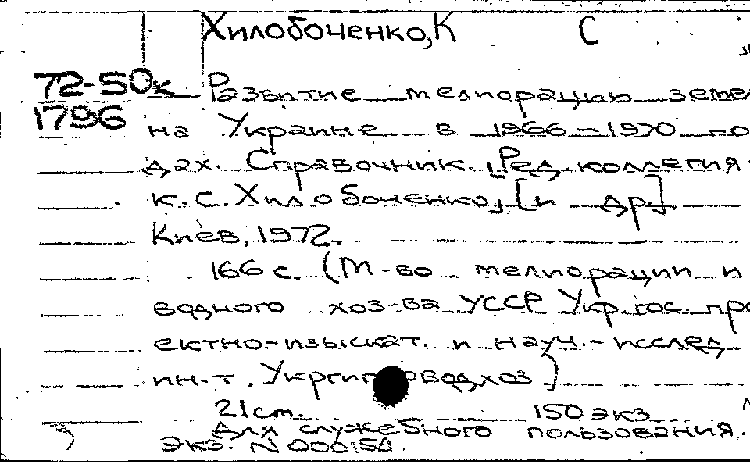 Хилобоченко, К С
72-50к Развитие мелиорацию земе
1796 на Украине в 1966-1970 го-
дах. Справочник. [Ред. коллегия
К.С. Хилобоченко, [и др.]
Киев, 1972.
166 с. (М-во мелиорации и
водного хоз-ва УССР Укр. гос. про
ектно-изыскат. и науч.-исслед
ин-т. Укргип водхоз)
21 см. 150 экз
Для служебного пользования.
Экз. N 000150.